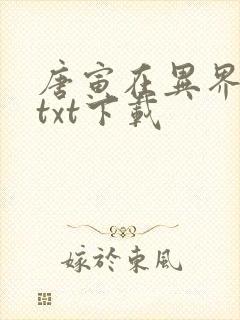 唐寅在異界
txt下載
嫁於東風